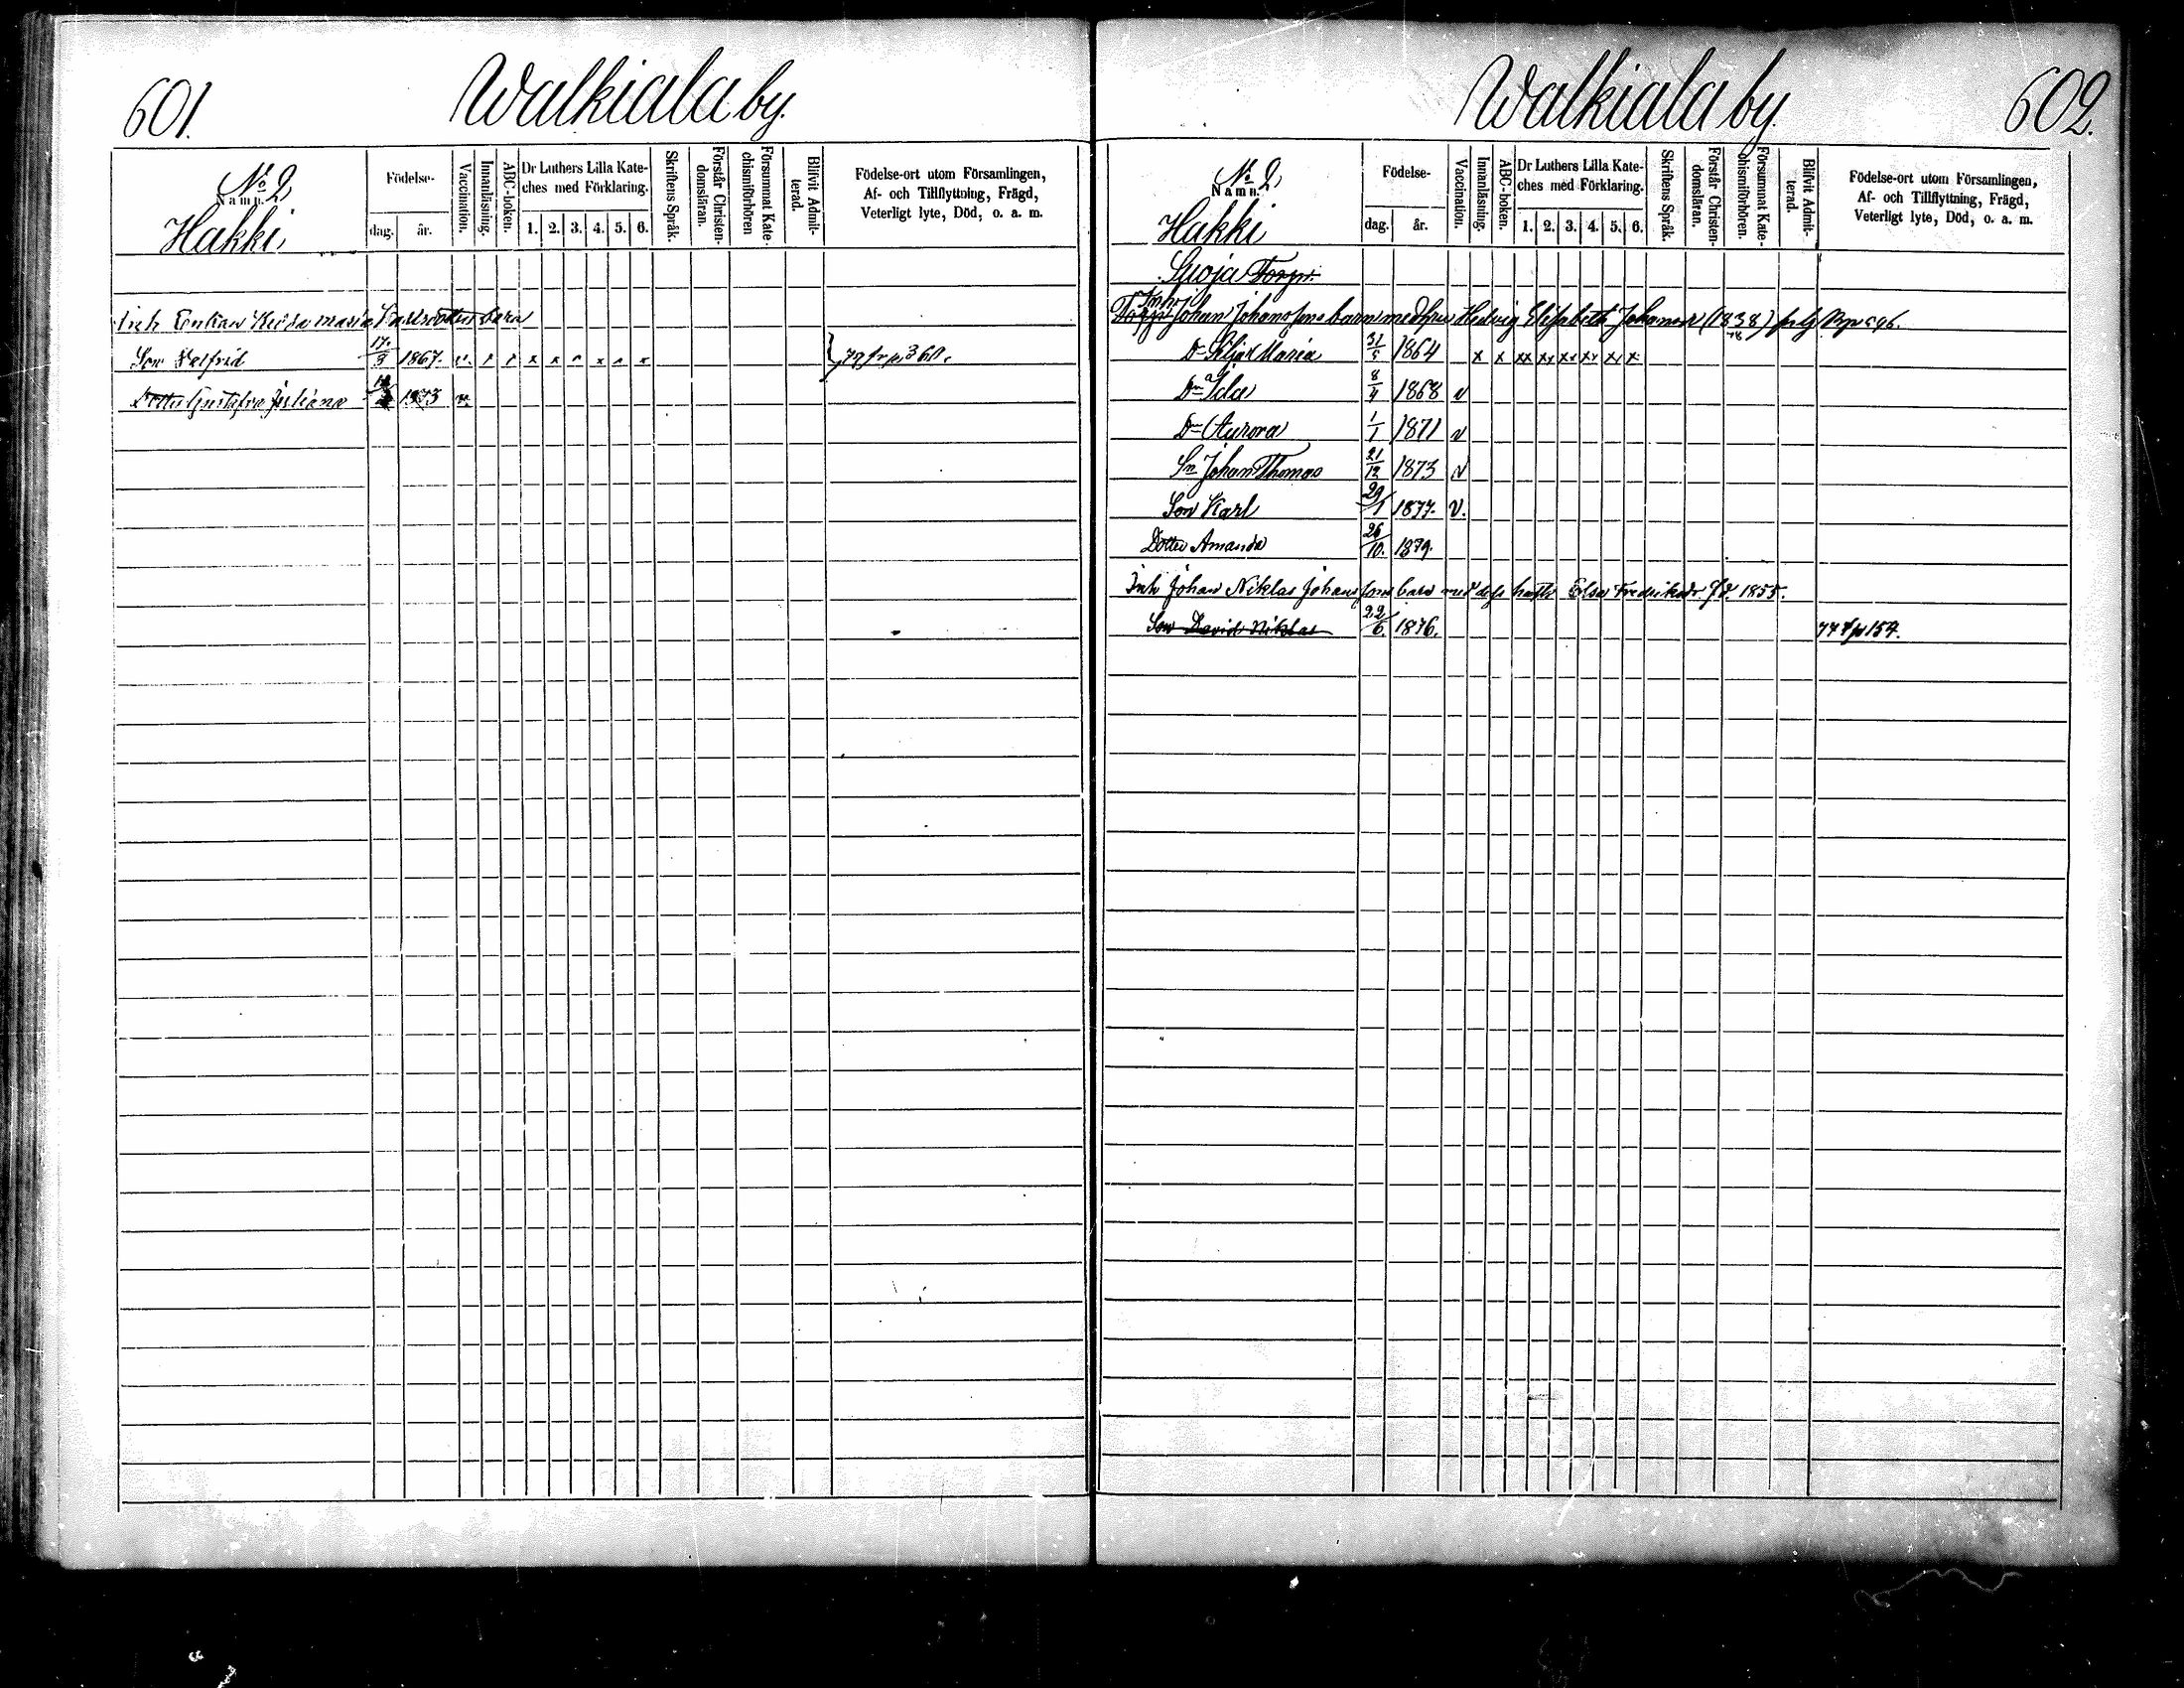 601.
Walkiala by.
No 2,
Namn.
Hakki,
Födelse-
dag.
år.
Vaccination.
Innanläsning.
ABC-boken.
Dr Luthers Lilla Kate-
ches med Förklaring.
1. 2. 3. 4. 5. 6.
Skriftens Språk.
Förstår Christen-
domsläran.
Försummat Kate-
chismiförhören
Blifvit Admit-
terad.
Födelse-ort utom Församlingen,
Af- och Tillflyttning, Frägd,
Veterligt lyte, Död, o. a. m.
Inh Enkan Hedda Maria barn
Son 17/3 1867. v. x x x x x x x x
Dotter Gustafva Juliana 1873 v.
602.
Walkiala by.
No 2,
Namn.
Hakki
Födelse-
dag.
år.
Vaccination.
Innanläsning.
ABC-boken.
Dr Luthers Lilla Kate-
ches med Förklaring.
1. 2. 3. 4. 5. 6.
Skriftens Språk.
Förstår Christen-
domsläran.
Försummat Kate-
chismiförhören.
Blifvit Admit-
terad.
Födelse-ort utom Församlingen,
Af- och Tillflyttning, Frägd,
Veterligt lyte, Död, o. a. m.
Suoja Torp.
Inh
Torp Johan Johanssons barn med hru Hedvig Elisabeth Johansdr (1838)
Dr Silja Maria 31/5 1864 x x xx xx xx xx x x
Dr Ida 8/4 1868 v
Dr Aurora 1/1 1871 v
Sn Johan Thomas 21/12 1873 v
Son Karl 29/1 1877. v.
Dotter Amanda 26/10. 1879.
Inh Johan Niklas Johanssons barn med dess hustr Elsa Fredriksdr fd. 1855.
Son David Niklas 22/6. 1876. 77 t/p 154.